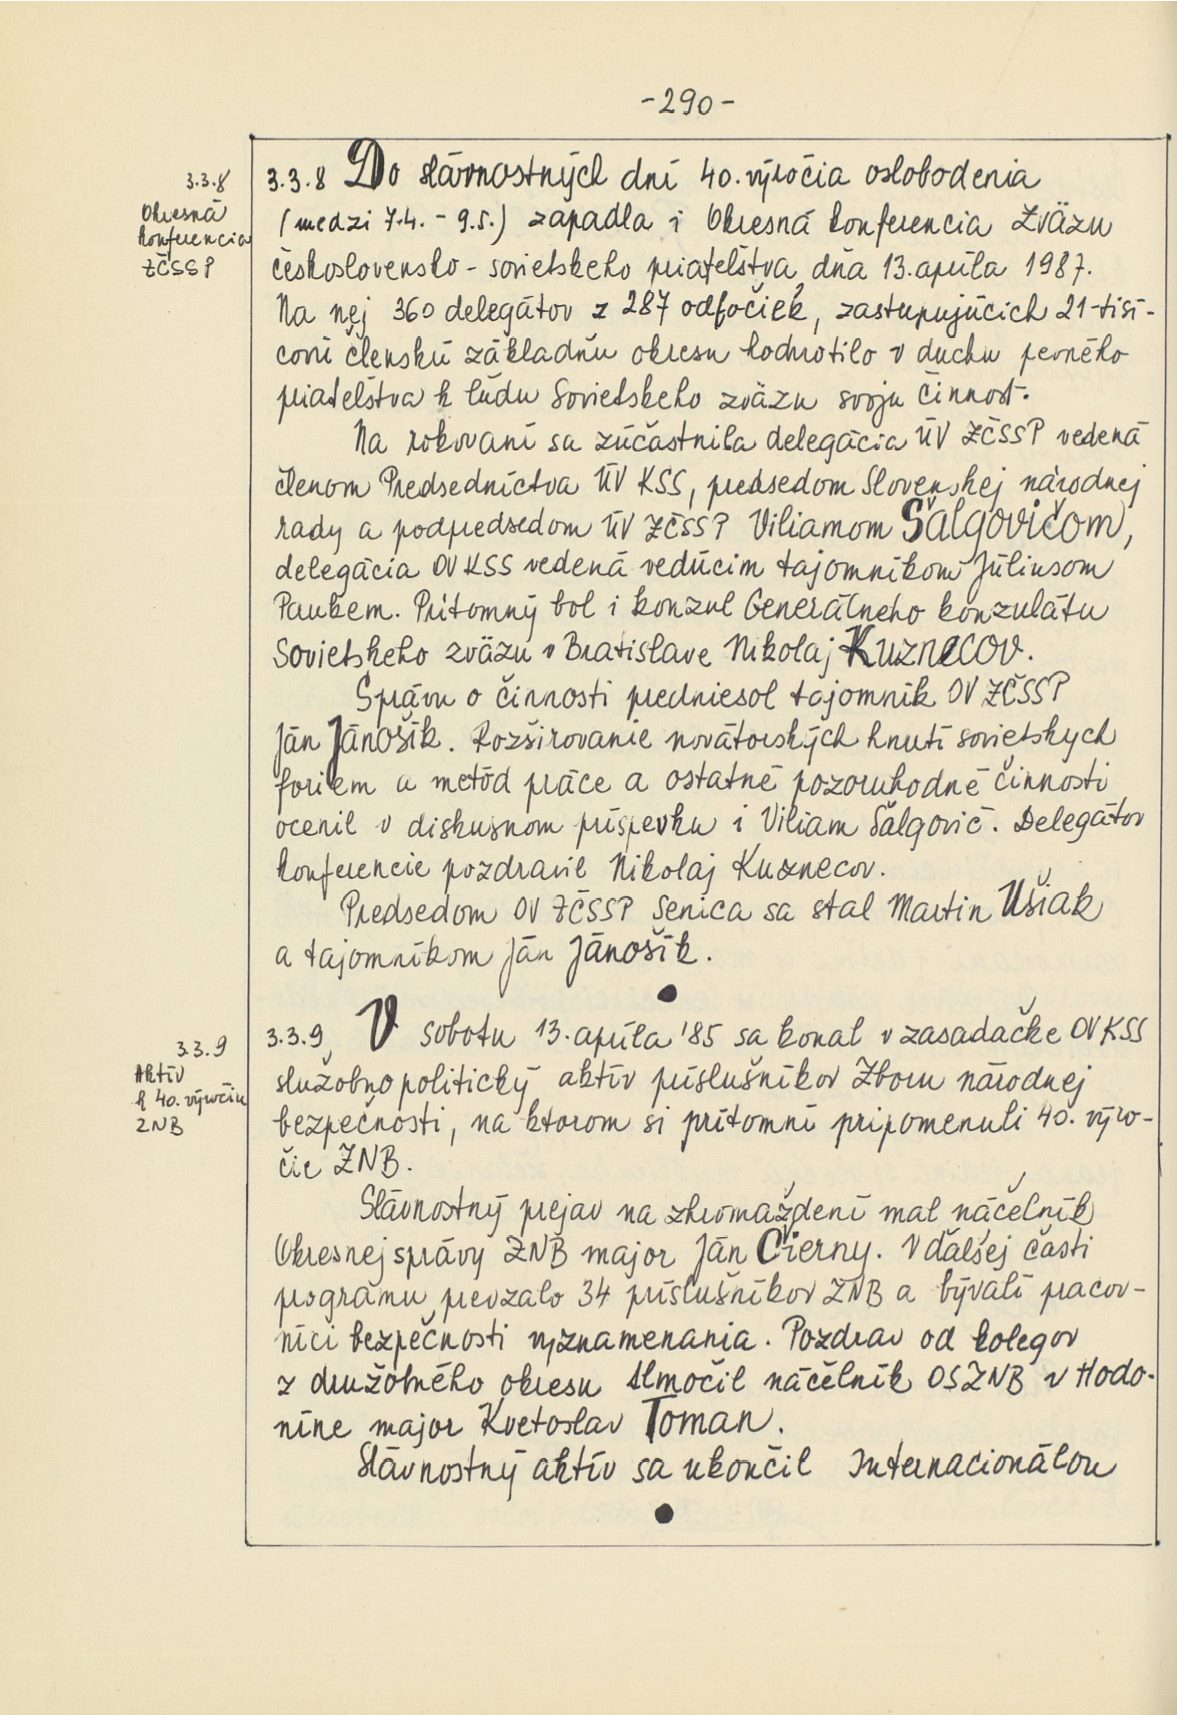 -290-
3.3.8
Okresná
konferencia
ZČSSP
3.3.8 Do slávnostných dní 40. výročia oslobodenia
(medzi 7.4. - 9.5.) zapadla i Okresná konferencia Zväzu
československo - sovietskeho priateľstva dňa 13. apríla 1987.
Na nej 360 delegátov z 287 odbočiek, zastupujúcich 21-tisí-
covú členskú základňu okresu hodnotilo v duchu pevného
priateľstva k ľudu Sovietskeho zväzu svoju činnosť.
Na rokovaní sa zúčastnila delegácia ÚV ZČSSP vedená
členom Predsedníctva ÚV KSS, predsedom Slovenskej národnej
rady a podpredsedom ÚV ZČSSP Viliamom Šalgovičom,
delegácia OV KSS vedená vedúcim tajomníkom Júliusom
Paukem. Prítomný bol i konzul Generálneho konzulátu
Sovietskeho zväzu v Bratislave Nikolaj Kuznecov.
Správu o činnosti predniesol tajomník OV ZČSSP
Ján Jánošík. Rozširovanie novátorských hnutí sovietskych
foriem a metód práce a ostatné pozoruhodné činnosti
ocenil v diskusnom príspevku i Viliam Šalgovič. Delegátov
konferencie pozdravil Nikolaj Kuznecov.
Predsedom OV ZČSSP Senica sa stal Martin Ušiak
a tajomníkom Ján Jánošík.
3.3.9
Aktív
k 40. výročiu
ZNB
3.3.9 V sobotu 13. apríla '85 sa konal v zasadačke OV KSS
služobnopolitický aktív príslušníkov Zboru národnej
bezpečnosti, na ktorom si prítomní pripomenuli 40. výro-
čie ZNB.
Slávnostný prejav na zhromaždení mal náčelník
Okresnej správy ZNB major Ján Čierny. V ďalšej časti
programu prevzalo 34 príslušníkov ZNB a bývalí pracov-
níci bezpečnosti vyznamenania. Pozdrav od kolegov
z družobného okresu tlmočil náčelník OS ZNB v Hodo-
níne major Kvetoslav Toman.
Slávnostný aktív sa ukončil Internacionálou